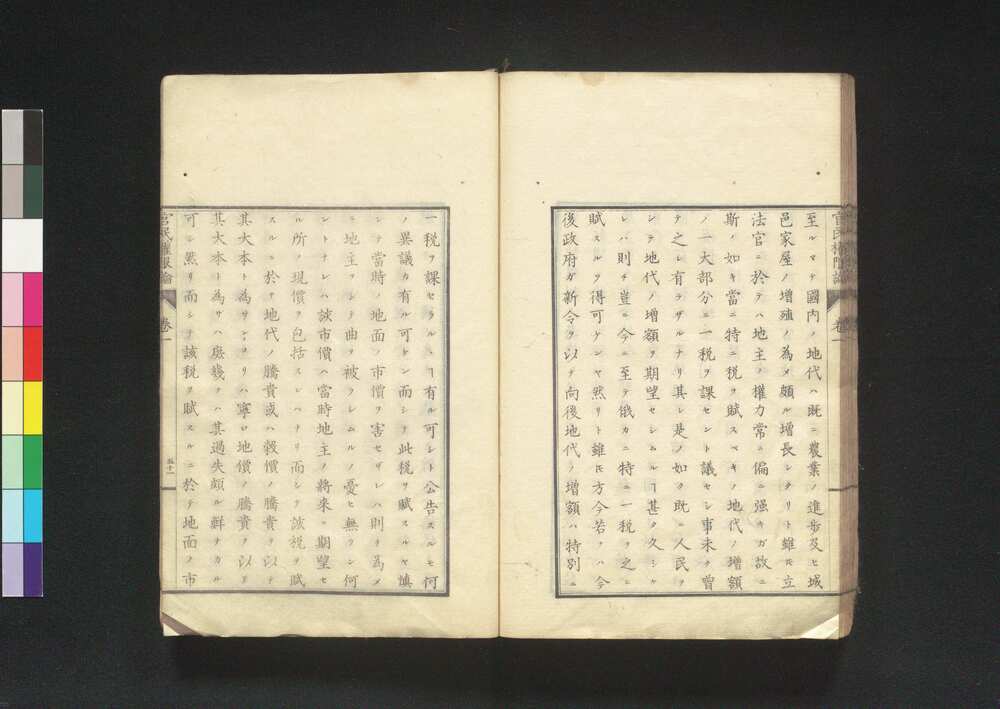 至ルマテ國内ノ地代ハ既ニ農業ノ進歩及ヒ城
邑家屋ノ増殖ノ為メ頗ル増長シタリト雖𪜈立
法官ニ於テハ地主ノ權力常ニ偏ニ强キガ故ニ
斯ノ如キ當ニ特ニ税ヲ賦スベキノ地代ノ増額
ノ一大部分ニ一税ヲ課セント議セシ事未タ曾
テ之レ有ラザルナリ其レ是ノ如ク既ニ人民ヲ
シテ地代ノ増額ヲ期望セシムルヿ甚タ久シケ
レハ則チ豈ニ今ニ至テ俄カニ特ニ一税ヲ之ニ
賦スルヲ得可ケンヤ然リト雖𪜈方今若クハ今
後政府ガ新令ヲ以テ向後地代ノ増額ハ特別ニ
官民權限論
卷一
一税ヲ課セラルヽヿ有ル可シト公告スルモ何
ノ異議カ有ル可ケン而シテ此税ヲ賦スルヤ慎
シテ當時ノ地面ノ市價ヲ害セザレハ則チ為メ
ニ地主ヲシテ曲ヲ被フラシムルノ憂ヒ無ラン何
ントナレハ該市價ハ當時地主ノ將來ニ期望セ
ル所ノ現價ヲ包括スレハナリ而シテ該税ヲ賦
スルニ於テ地代ノ騰貴或ハ穀價ノ騰貴ヲ以テ
其大本ト為サンヨリハ寧ロ地價ノ騰貴ヲ以テ
其大本ト為サハ庶幾クハ其過失頗ル鮮ナカル
可シ然リ而シテ該税ヲ賦スルニ於テ地面ノ市
官民權限論
卷一
五十一